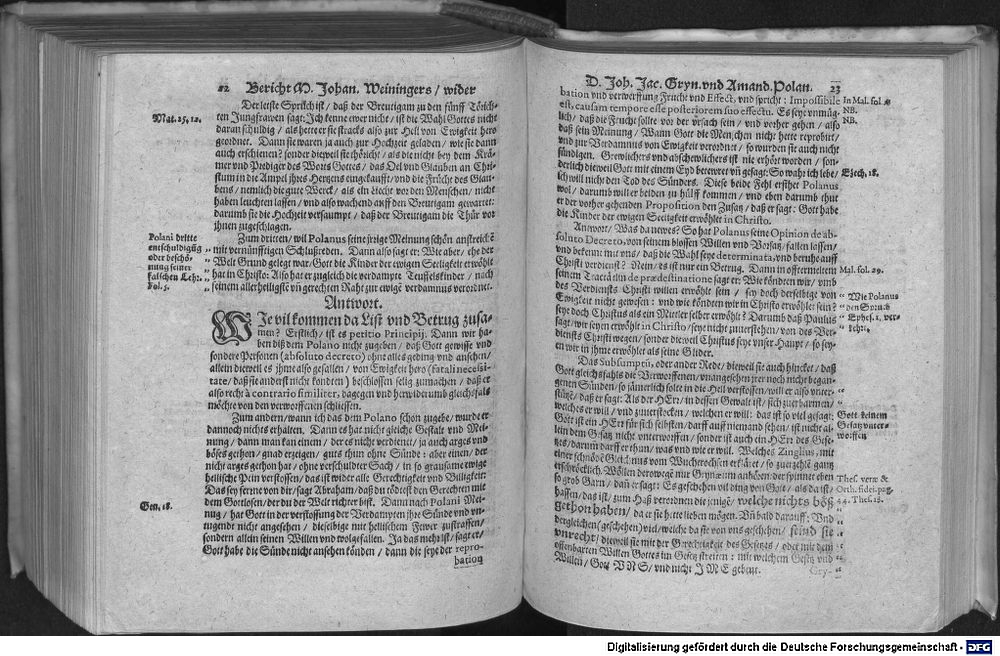 12 Bericht M. Johan. Weiningers / wider
Der letste Spruch ist / daß der Breutigam zu den fünff Törich-
ten Jungfrawen sagt: Jch kenne ewer nicht / ist die Wahl Gottes nicht
Mat. 25, 12.
daran schuldig / als hette er sie stracks also zur Hell von Ewigkeit hero
geordnet. Dann sie waren ja auch zur Hochzeit geladen / wie sie dann
auch erschienen? sonder dieweil sie thöricht / als die nicht bey dem Krä-
mer vnd Prediger des Worts Gottes / das Oel vnd Glauben an Chri-
stum in die Ampel jhres Hertzens eingekaufft / vnd die Früchte des Glau-
bens / nemlich die gute Werck / als ein Liecht vor den Menschen / nicht
haben leuchten lassen / vnd also wachend auff den Breutigam gewartet:
darumb sie die Hochzeit versaumpt / daß der Breutigam die Thür vor
jhnen zugeschlagen.
Polani dritte
entschuldigūg
oder beschö-
nung seiner
falschen Lehr.
fol. 5.
Zum dritten / wil Polanus seine jrrige Meinung schön anstreichē
mit vernünfftigen Schlußreden. Dann also sagt er: Wie aber / ehe der
Welt Grund gelegt war / Gott die Kinder der ewigen Seeligkeit erwöhlt
hat in Christo: Also hat er zugleich die verdampte Teuffelskinder / nach
seinem allerheiligstē vñ gerechten Raht zur ewigē verdamnus verordnet.
Antwort.
WJe vil kommen da List vnd Betrug zusa-
men? Erstlich / ist es petitio Principij. Dann wir ha-
ben diß dem Polano nicht zugeben / daß Gott gewisse vnd
sondere Personen (absoluto decreto) ohne alles geding vnd ansehen /
allein dieweil es jhme also gefallen / von Ewigkeit hero (fatali necessi-
tate / daß sie anderst nicht konden) beschlossen selig zumachen / daß er
also recht à contrario similiter, dagegen vnd herwiderumb gleichsfals
möchte von den verworffenen schliessen.
Zum andern / wann ich das dem Polano schon zugebe / wurde er
dannoch nichts erhalten. Dann es hat nicht gleiche Gestalt vnd Mei-
nung / dann man kan einem / der es nicht verdienet / ja auch arges vnd
böses gethon / gnad erzeigen / guts thun ohne Sünde: aber einen / der
nicht arges gethon hat / ohne verschuldter Sach / in so grausame ewige
hellische Pein verstossen / das ist wider alle Gerechtigkeit vnd Billigkeit:
Gen. 18.
Das sey ferrne von dir / sagt Abraham / daß du tödtest den Gerechten mit
dem Gottlosen / der du der Welt richter bist. Dann nach Polani Mei-
nug / hat Gott in der verstossung der Verdampten jhre Sünde vnd vn-
tugendt nicht angesehen / dieselbige mit hellischem Fewer zustraffen /
sondern allein seinen Willen vnd wolgefallen. Ja das mehr ist / sagt er /
Gott habe die Sünde nicht ansehen könden / dann die seye der repro-
bation
D. Joh. Jac. Gryn. vnd Amand. Polan. 23
bation vnd verwerffung Frucht vnd Effect, vnd spricht: Impossibile
In Mal. fol. 8
est, causam tempore esse posteriorem suo effectu. Es seye vnmüg-
NB.
lich / daß die Frucht solte vor der vrsach sein / vnd vorher gehen / also
NB.
daß sein Meinung / Wann Gott die Menschen nicht hette reprobirt /
vnd zur Verdamnus von Ewigkeit verordnet / so wurden sie auch nicht
sündigen. Grewlichers vnd abschewlichers ist nie erhört worden / son-
derlich dieweil Gott mit einem Eyd betewret vñ gesagt: So wahr ich lebe /
Ezech. 18.
ich will nicht den Tod des Sünders. Diese beide Fehl ersihet Polanus
wol / darumb will er beiden zu hülff kommen / vnd eben darumb thut
er der vorher gehenden Proposition den Zusatz / daß er sagt: Gott habe
die Kinder der ewigen Seeligkeit erwöhlt in Christo.
Antwort / Was da newes? So hat Polanus seine Opinion de ab-
soluto Decreto, von seinem blossen Willen vnd Vorsatz / fallen lassen /
vnd bekennt mit vns / daß die Wahl seye determinata, vnd beruhe auff
Christi verdienst? Nein / es ist nur ein Betrug. Dann in offtermeltem
Mal. fol. 29.
seinem Tractätlin de prædestinatione sagt er: Wie könden wir / vmb
des Verdiensts Christi willen erwöhlt sein / sey doch derselbige von
Wie Polanus
den Spruch
Ephes. 1. ver-
kehrt.
Ewigkeit nicht gewesen: vnd wie könden wir in Christo erwöhlet sein?
seye doch Christus als ein Mittler selber erwöhlt? Darumb daß Paulus
sagt / wir seyen erwöhlt in Christo / seye nicht zuuerstehen / von des Ver-
diensts Christi wegen / sonder dieweil Christus seye vnser Haupt / so sey-
en wir in jhme erwöhlet als seine Glider.
Das Subsumptū, oder ander Rede / dieweil sie auch hincket / daß
Gott gleichsfahls die Verworffenen / vnangesehen jrer noch nicht began-
genen Sünden / so jämerlich solte in die Hell verstossen / will er also vnter-
stütze / daß er sagt: Als der HErr / in dessen Gewalt ist / sich zuerbarmen /
welches er will / vnd zuuerstocken / welchen er will: das ist so viel gesagt:
Gott keinem
Gesatz vnter-
worffen
Gott ist ein HErr für sich selbsten / darff auff niemand sehen / ist nicht al-
lein dem Gesatz nicht vnterworffen / sonder ist auch ein HErr des Gese-
tzes / darum darff er thun / was vnd wie er will. Welches Zinglius, mit
einer schnöde Gleichnus vom Wucherochsen erkläret / so zuerzehlē gantz
erschröcklich. Wöllen derowegē mit Grynæum anhören, der spinnet eben
Thes. verw &
Orth. fidei. pag.
44. Thes. 18.
so grob Garn / dañ er sagt: Es geschehen vil ding von Gott / als da ist /
hassen / das ist / zum Haß verordnen die jenigē / welche nichts böß
gethon haben / da er sie hette lieben mögen. Vñ bald darauff: Vnd
dergleichen (geschehen) viel / welche da sie von vns geschehen / seind sie
vnrecht / dieweil sie mit der Gerechtigkeit des Gesetzes / oder mit dem
offenbarten Willen Gottes im Gesetz streiten: mit welchem Gesetz vnd
Willen / Gott VNS / vnd nicht JME gebeut.
Gry-
Digitalisierung gefördert durch die Deutsche Forschungsgemeinschaft - DFG